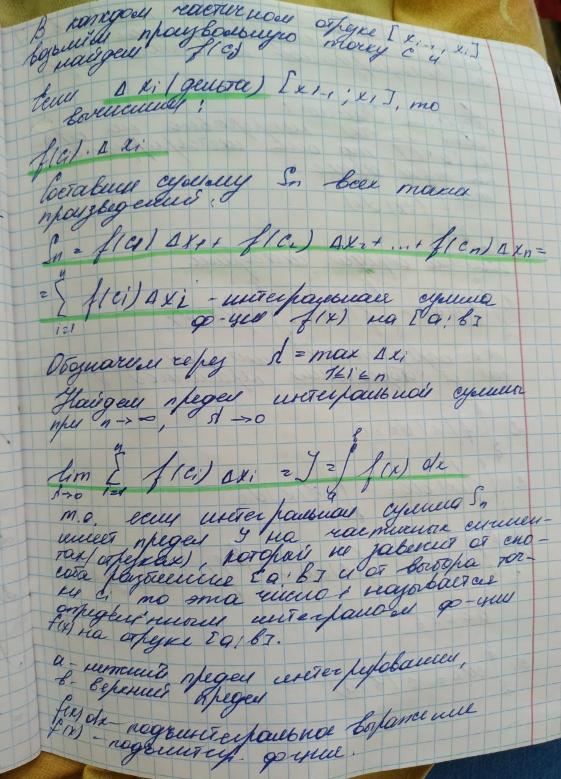 В каждом частичном отрезке [xᵢ₋₁, xᵢ]
возьмём произвольную точку c и
найдем f(cᵢ)
Если Δ xᵢ (дельта) [xᵢ₋₁; xᵢ], то
вычислим:
f(cᵢ)·Δ xᵢ
Составим сумму Sₙ всех таких
произведений.
Sₙ = f(c₁) Δx₁ + f(c₂) Δx₂ + ... + f(cₙ) Δxₙ =
= ∑ⁿᵢ₌₁ f(cᵢ) Δxᵢ - интегральная сумма
ф-ции f(x) на [a; b]
Обозначем через λ = max Δxᵢ
1≤i≤n
Найдем предел интегральной суммы
при n→∞, λ→0
lim λ→0 ∑ⁿᵢ₌₁ f(cᵢ) Δxᵢ = J = ∫ f(x) dx
т.о. если интегральная сумма Sₙ
имеет предел J на частичных сигмен-
тах (отрезках), который не зависит от спо-
соба разбиения [a; b] и от выбора точ-
ки cᵢ то эта число называется
определённым интегралом ф-ции
f(x) на отрезке [a; b].
a - нижний предел интегрирования,
b - верхний предел
f(x) dx - подынтегральное выражение
f(x) - подынтегр. ф-ция.